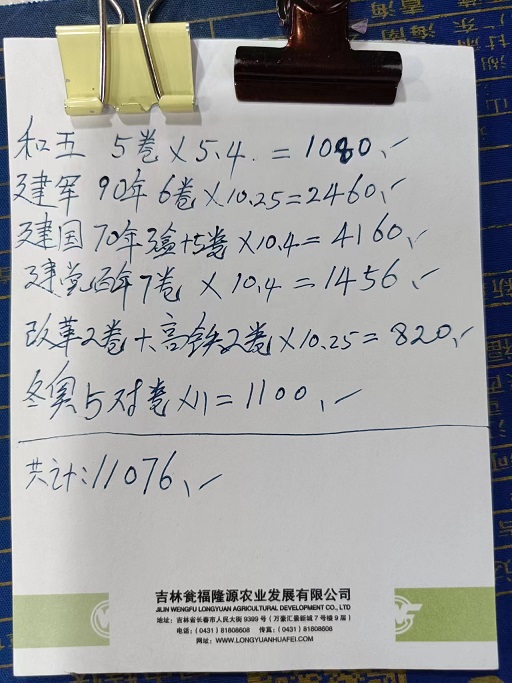 和五 5卷×5.4.=1080、✓
建军90年6卷×10.25=2460、✓
建国70年3盒+5卷×10.4=4160、✓
建党百年7卷×10.4=1456、✓
改革2卷+高铁2卷×10.25=820、✓
冬奥5对卷×11=1100、✓
共计:11076、✓
吉林瓮福隆源农业发展有限公司
JILIN WENGFU LONGYUAN AGRICULTURAL DEVELOPMENT CO., LTD
地址:吉林省长春市人民大街9399号(万豪汇景新城7号楼9层)
电话:(0431)81808608 传真:(0431)81808608
网址:WWW.LONGYUANHUAFEI.COM
青海
海南